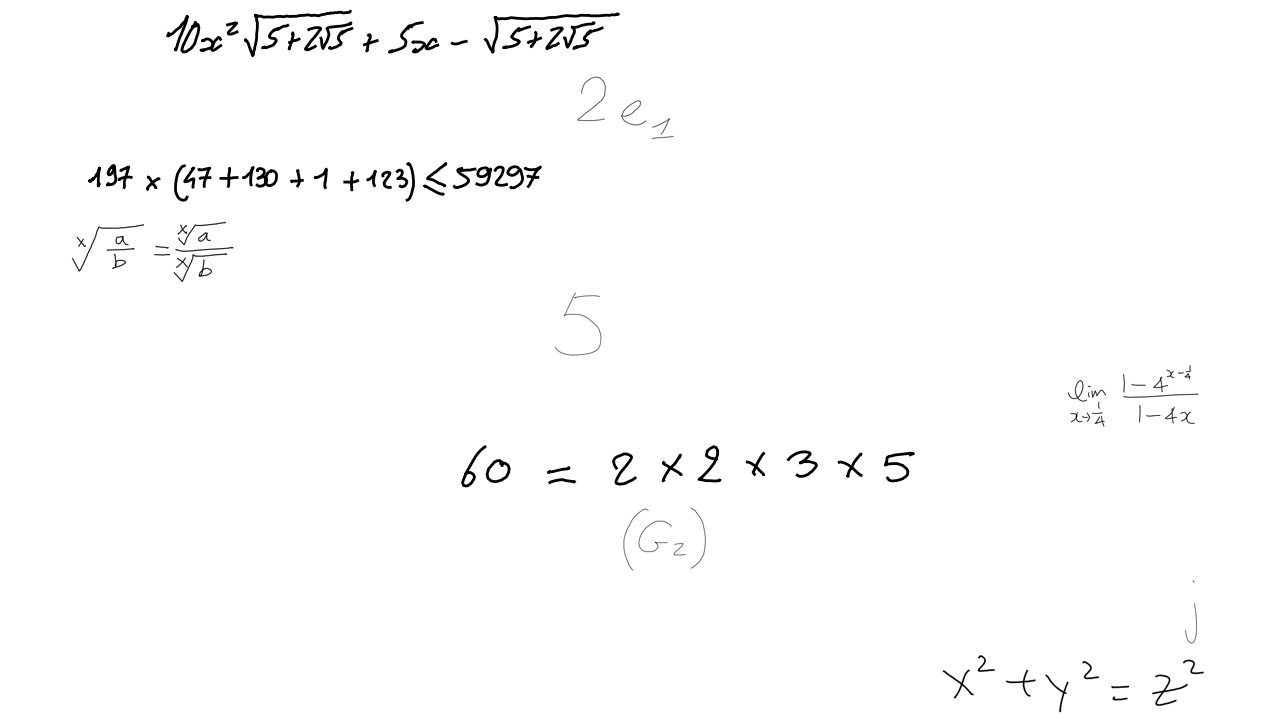 10x²√(5+2√5) + 5x − √(5+2√5)
2e₁
197 × (47+130+1+123) ≤ 59297
ˣ√(a/b) = ˣ√a / ˣ√b
5
lim x→1/4 (1−4^(x−1/4)) / (1−4x)
60 = 2 × 2 × 3 × 5
(G₂)
j
x² + y² = z²